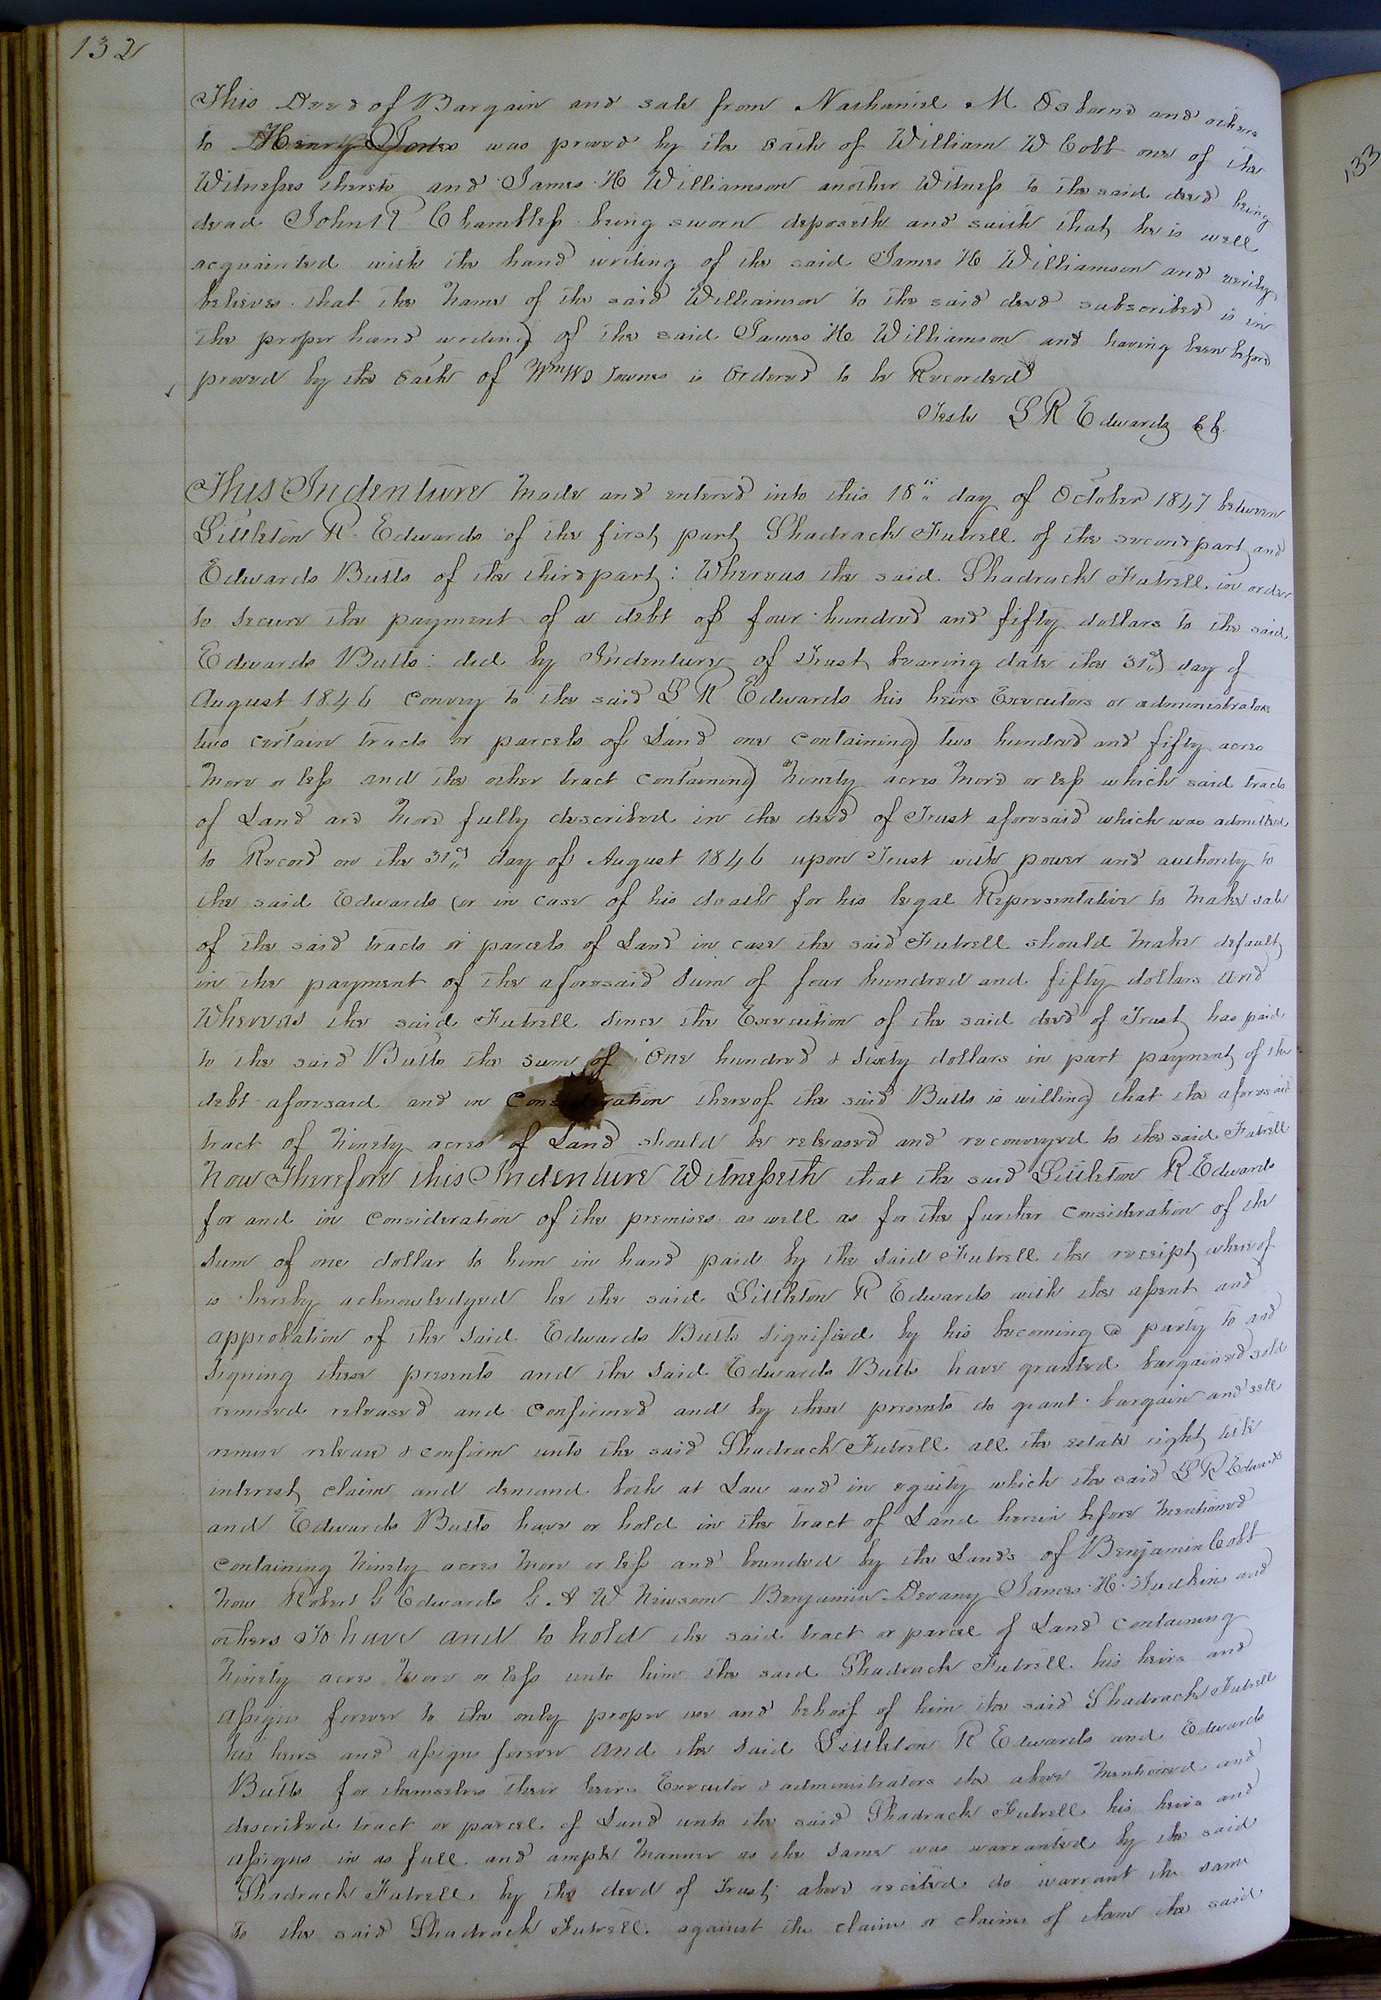 132
This Deed of Bargain and sale from Nathaniel M Osborne and others
to Henry Jones was proved by the oath of William W Cobb one of the
Witnesses thereto and James H Williamson another Witness to the said deed being
dead John R Chambless being sworn deposeth and saith that he is well
acquainted with the hand writing of the said James H Williamson and verily
believes that the name of the said Williamson to the said deed subscribed is in
the proper hand writing of the said James H Williamson and having been before
proved by the oath of Wm W D Townes is Ordered to be Recorded
Teste L R Edwards CC.
133
This Indenture made and entered into this 18th day of October 1847 between
Littleton R. Edwards of the first part Shadrack Futrell of the second part and
Edwards Butts of the third part: Whereas the said Shadrack Futrell in order
to secure the payment of a debt of four hundred and fifty dollars to the said
Edwards Butts: did by Indenture of Trust bearing date the 31st day of
August 1846 convey to the said L R Edwards his heirs Executors or administrators
two certain tracts or parcels of Land one containing two hundred and fifty acres
more or less and the other tract containing ninety acres more or less which said tracts
of Land are more fully described in the deed of Trust aforesaid which was admitted
to Record on the 31st day of August 1846 upon Trust with power and authority to
the said Edwards (or in case of his death for his legal Representative to make sale
of the said tracts or parcels of Land in case the said Futrell should make default
in the payment of the aforesaid sum of four hundred and fifty dollars and
Whereas the said Futrell since the Execution of the said deed of Trust has paid
to the said Butts the sum of One hundred & sixty dollars in part payment of the
debt aforesaid and in consideration thereof the said Butts is willing that the aforesaid
tract of ninety acres of Land should be released and reconveyed to the said Futrell
Now Therefore this Indenture Witnesseth that the said Littleton R Edwards
for and in consideration of the premises as well as for the further consideration of the
sum of one dollar to him in hand paid by the said Futrell the receipt whereof
is hereby acknowledged he the said Littleton R Edwards with the assent and
approbation of the said Edwards Butts signified by his becoming a party to and
signing these presents and the said Edwards Butts have granted bargained sold
remised released and confirmed and by these presents do grant bargain and sell
remise release & confirm unto the said Shadrack Futrell all the estate right title
interest claim and demand both at Law and in equity which the said L R Edwards
and Edwards Butts have or hold in the tract of Land herein before mentioned
containing ninety acres more or less and bounded by the Lands of Benjamin Cobb
now Robert G Edwards G A W Newsom Benjamin Devany James H. Judkins and
others To have and to hold the said tract or parcel of Land containing
ninety acres more or less unto him the said Shadrack Futrell his heirs and
assigns forever to the only proper use and behoof of him the said Shadrack Futrell
his heirs and assigns forever and the said Littleton R Edwards and Edwards
Butts for themselves their heirs Executor & administrators the above mentioned and
described tract or parcel of Land unto the said Shadrack Futrell his heirs and
assigns in as full and ample manner as the same was warranted by the said
Shadrack Futrell by the deed of Trust above recited do warrant the same
to the said Shadrack Futrell against the claim or claims of them the said